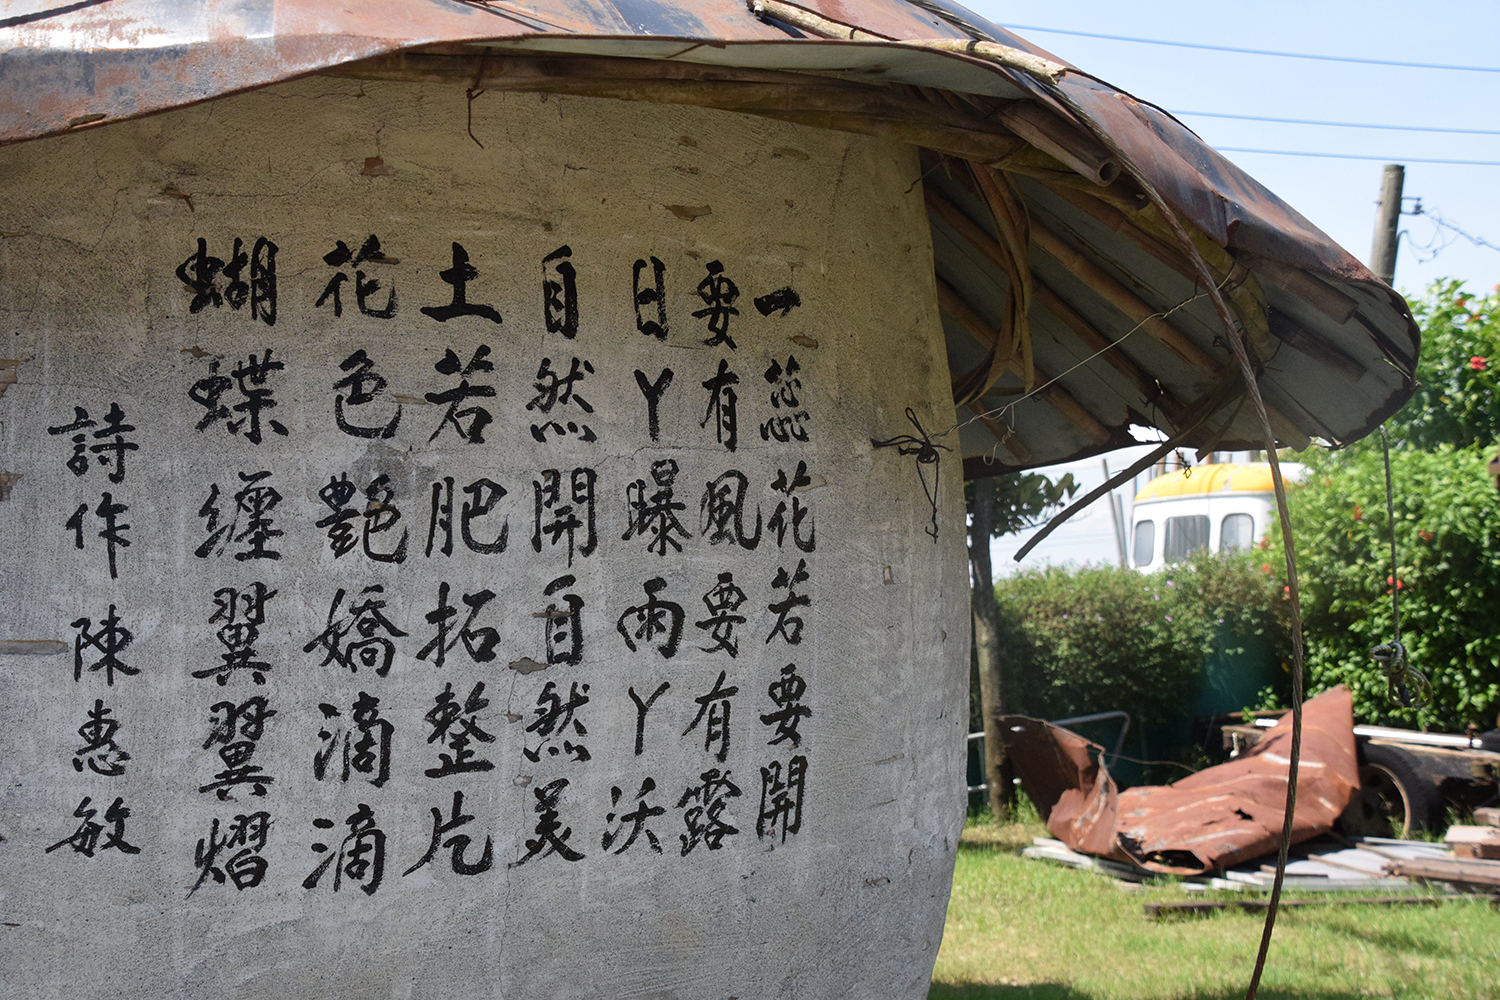 一蕊花若要開
要有風要有露
日丫曝雨丫沃
自然開自然美
土若肥拓整片
花色艷嬌滴滴
蝴蝶纏翼翼熠
詩作陳惠敏